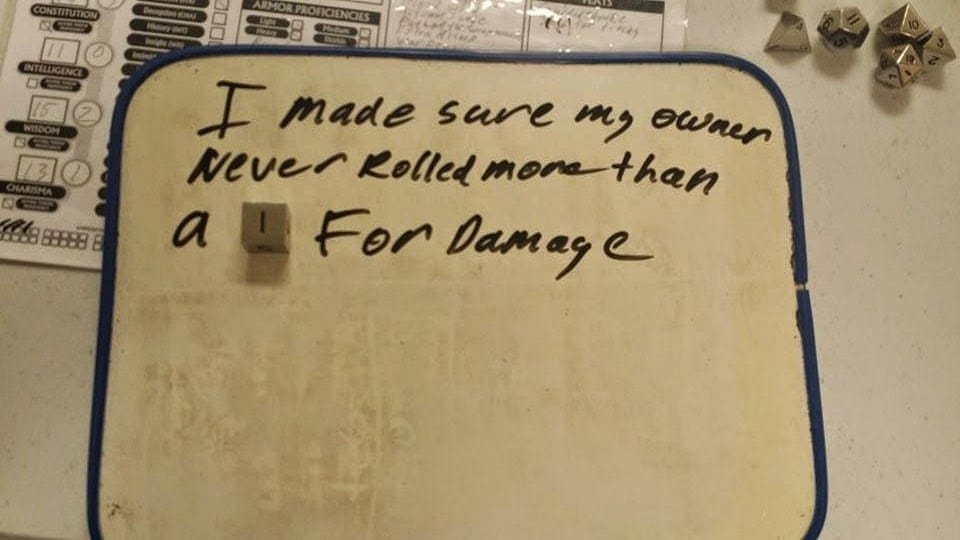 CONSTITUTION
11
0
INTELLIGENCE
15
2
WISDOM
13
1
CHARISMA
Deception (CHA)
History (INT)
Insight (WIS)
ARMOR PROFICIENCIES
Light
Medium
Heavy
Shields
FEATS
I made sure my owner
Never Rolled more than
a 1 For Damage
11
10
2